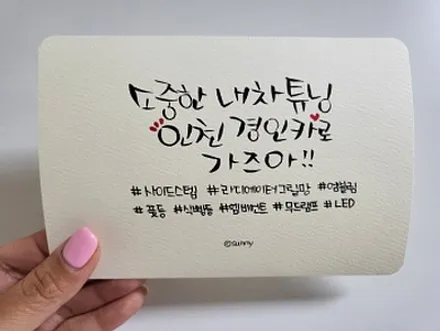 소중한 내차튜닝
인천 경인카로
가즈아!!
#사이드스텝 #라디에이터그릴망 #엠블럼
#꽃등 #실빽등 #헴버먼트 #무드램프 #LED
©sunny